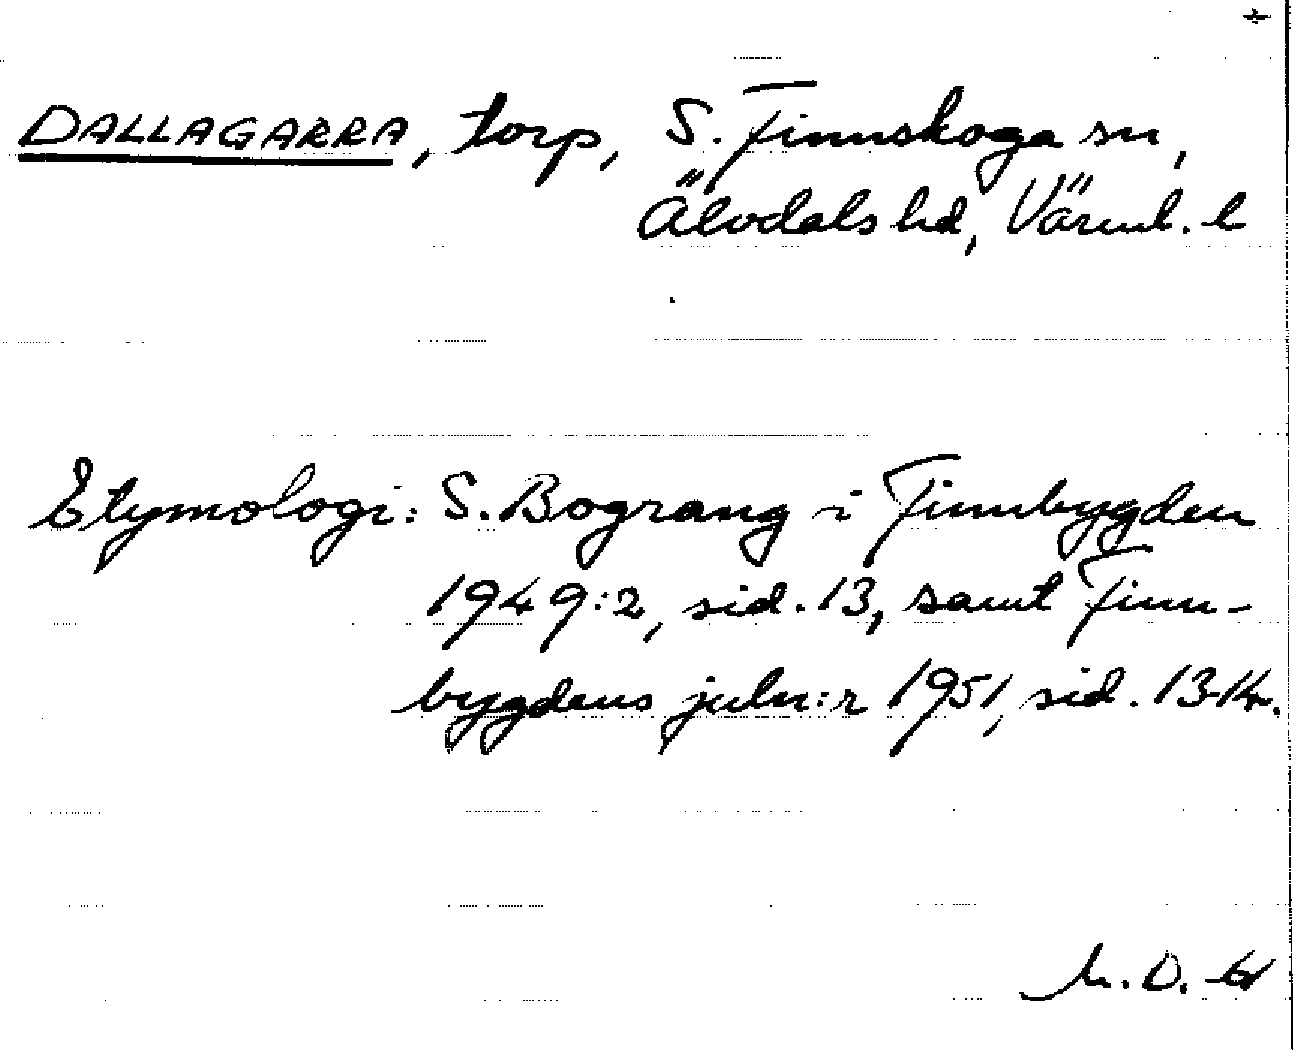 DALLAGARRA, torp, S. Finnskoga sn,
Älvdals hd, Värml. l
Etymologi: S. Bograng i Finnbygden
1949:2, sid. 13, samt Finn-
bygdens juln:r 1951, sid. 13-14.